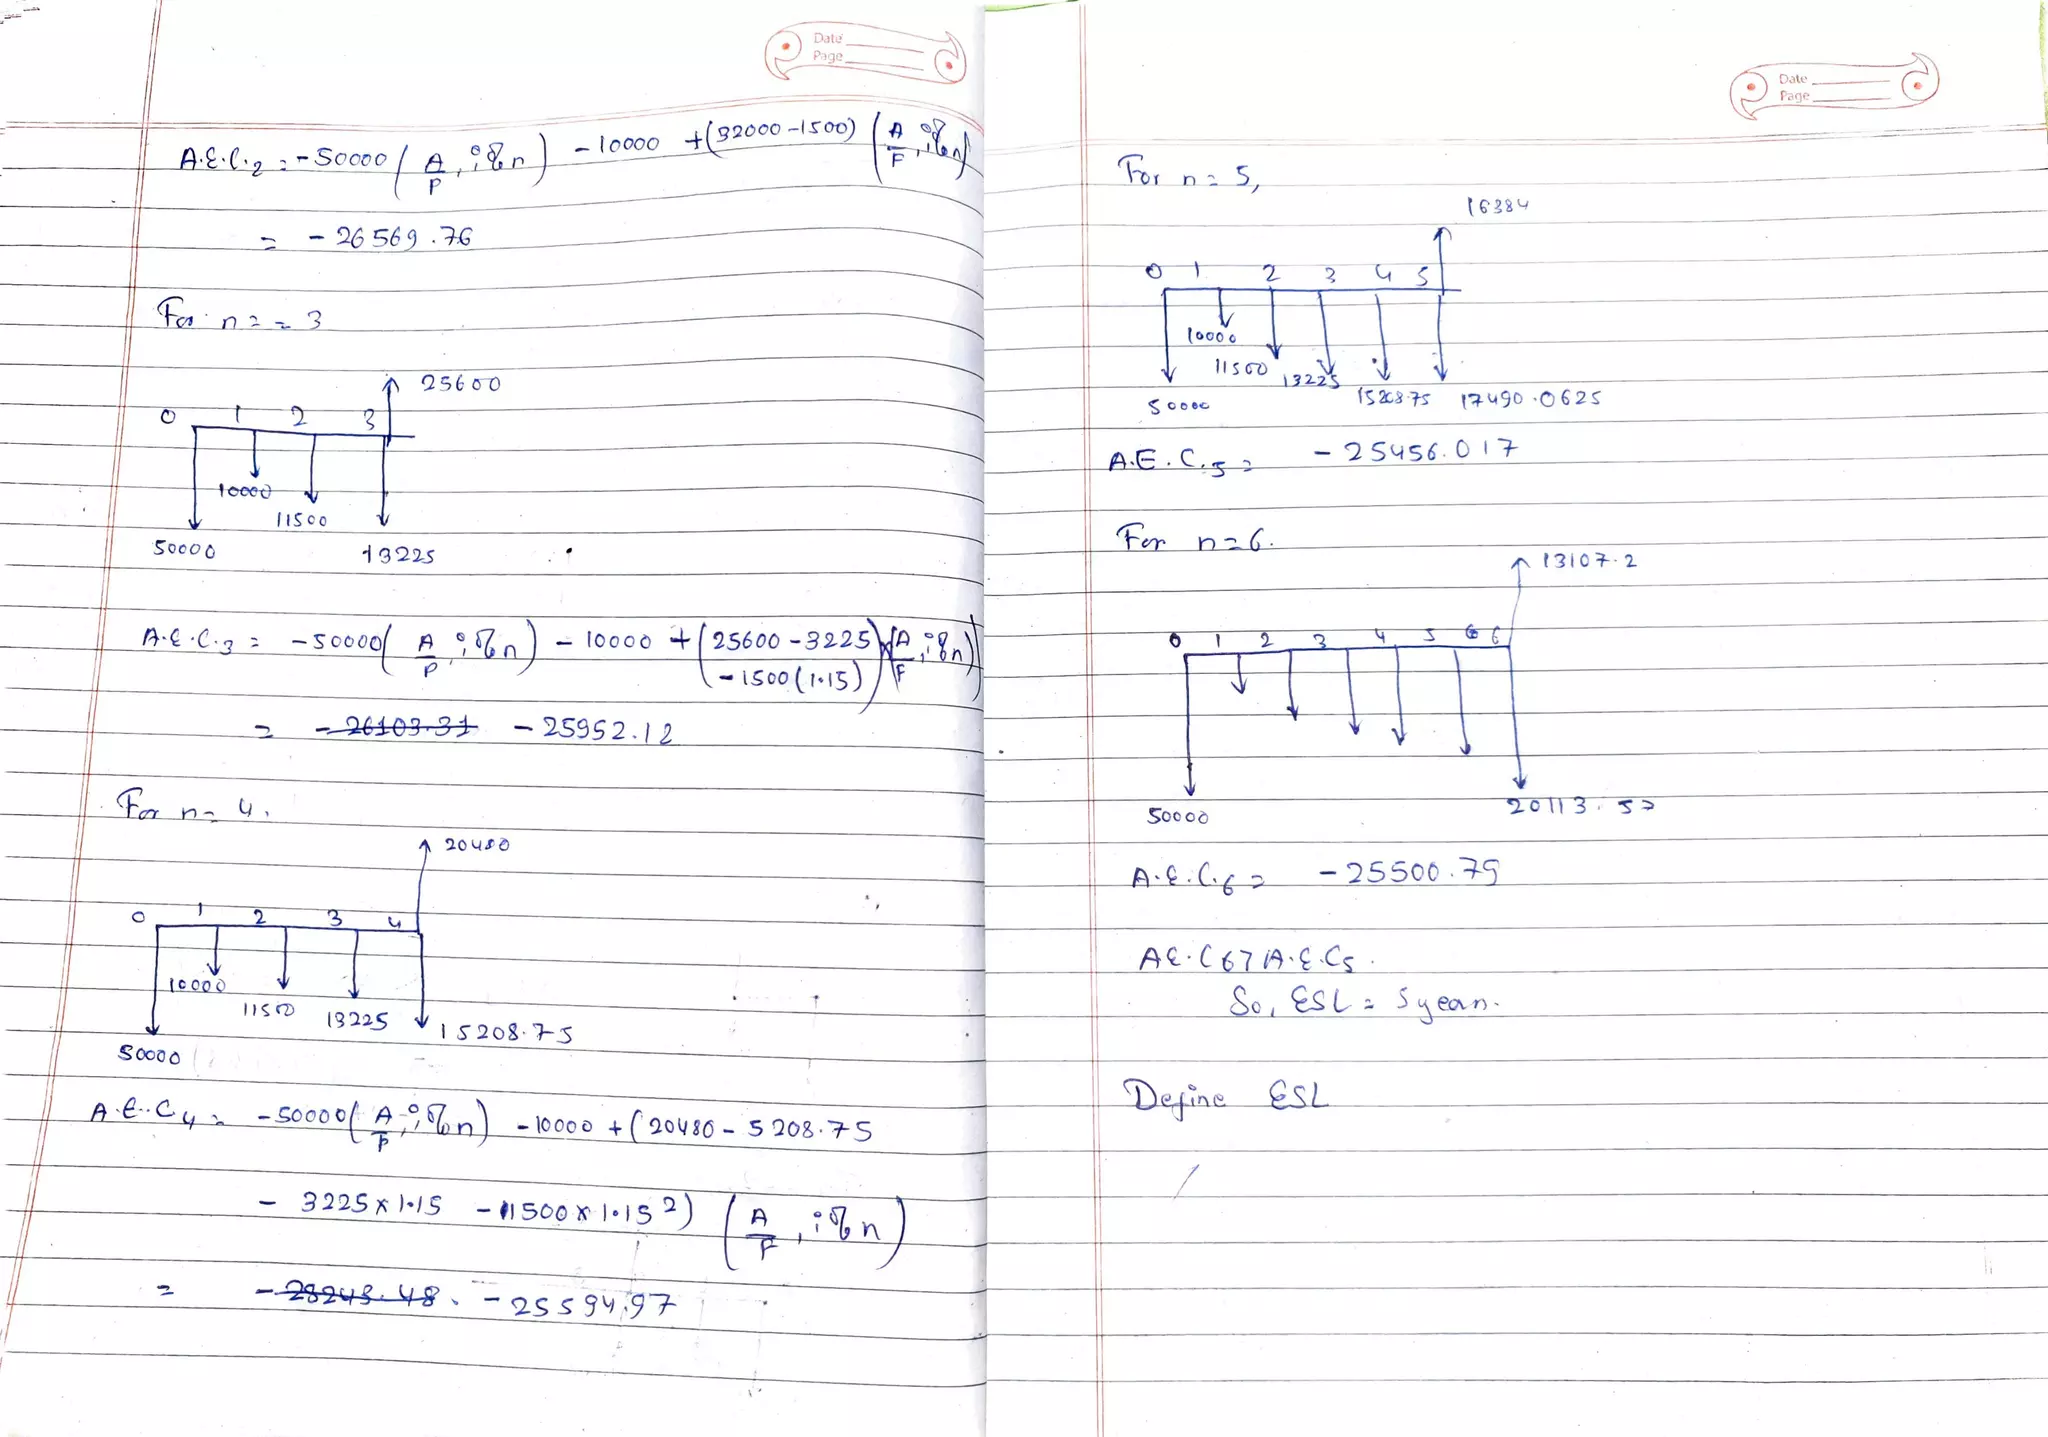 Date
Page
A.E.C.2 = -50000 (A/P, i% n) - 10000 + (32000 - 1500) (A/F, i% n)
= - 26569.76
For n = = 3
25600
0 1 2 3
10000
11500
50000 13225
A.E.C.3 = -50000 (A/P, i% n) - 10000 + (25600 - 3225 - 1500 (1.15)) × (A/F, i% n)
= - 26103.31 - 25952.12
For n = 4,
20480
0 1 2 3 4
10000
11500 13225 15208.75
50000
A.E.C4 = -50000 (A/P, i% n) - 10000 + (20480 - 5208.75
- 3225 × 1.15 - 1500 × 1.15²) (A/F, i% n)
= - 28243.48. - 25594.97
Date
Page
For n = 5,
16384
0 1 2 3 4 5
10000
11500 13225
50000 15208.75 17490.0625
A.E.C.5 = - 25456.017
For n = 6.
13107.2
0 1 2 3 4 5 6 6
50000 20113.57
A.E.C.6 = - 25500.79
A E.C 6 > A.E.C5.
So, ESL = 5 years.
Define ESL